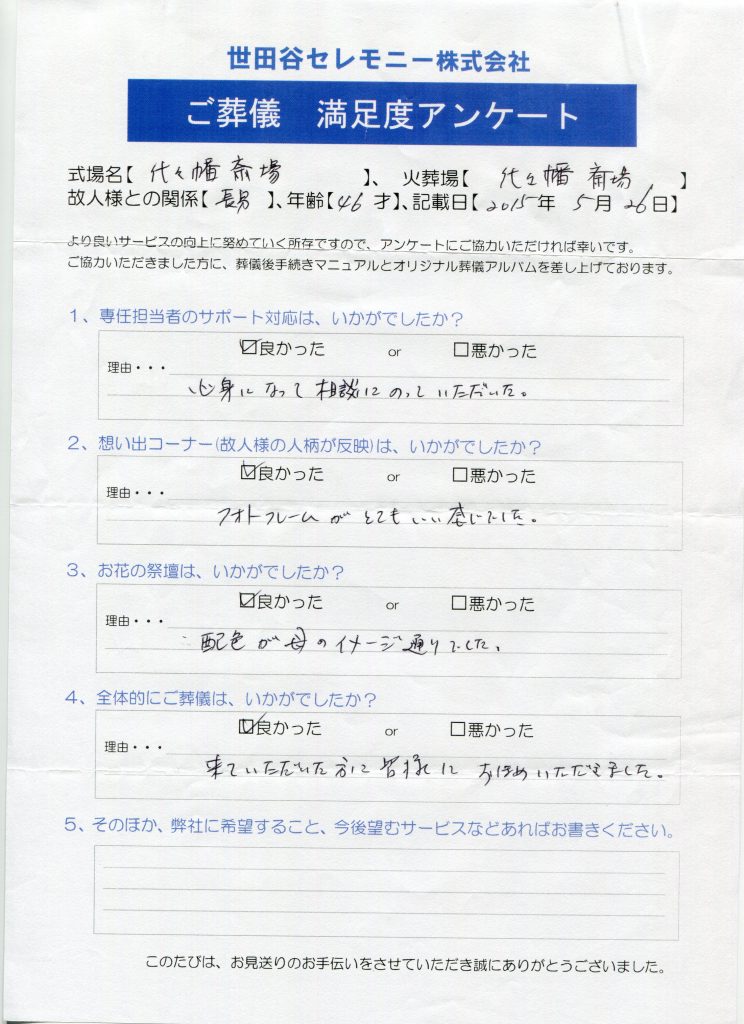 世田谷セレモニー株式会社
ご葬儀　満足度アンケート
式場名【 代々幡斎場 】、 火葬場【 代々幡斎場 】
故人様との関係【 長男 】、年齢【 46 才】、記載日【 2015年 5月 26日】
より良いサービスの向上に努めていく所存ですので、アンケートにご協力いただければ幸いです。
ご協力いただきました方に、葬儀後手続きマニュアルとオリジナル葬儀アルバムを差し上げております。
1、専任担当者のサポート対応は、いかがでしたか？
☑良かった or □悪かった
理由・・・
心身になって相談にのっていただいた。
2、想い出コーナー(故人様の人柄が反映)は、いかがでしたか？
☑良かった or □悪かった
理由・・・
フォトフレームがとてもいい感じでした。
3、お花の祭壇は、いかがでしたか？
☑良かった or □悪かった
理由・・・
配色が母のイメージ通りでした。
4、全体的にご葬儀は、いかがでしたか？
☑良かった or □悪かった
理由・・・
来ていただいた方に皆様におほめいただきました。
5、そのほか、弊社に希望すること、今後望むサービスなどあればお書きください。
このたびは、お見送りのお手伝いをさせていただき誠にありがとうございました。